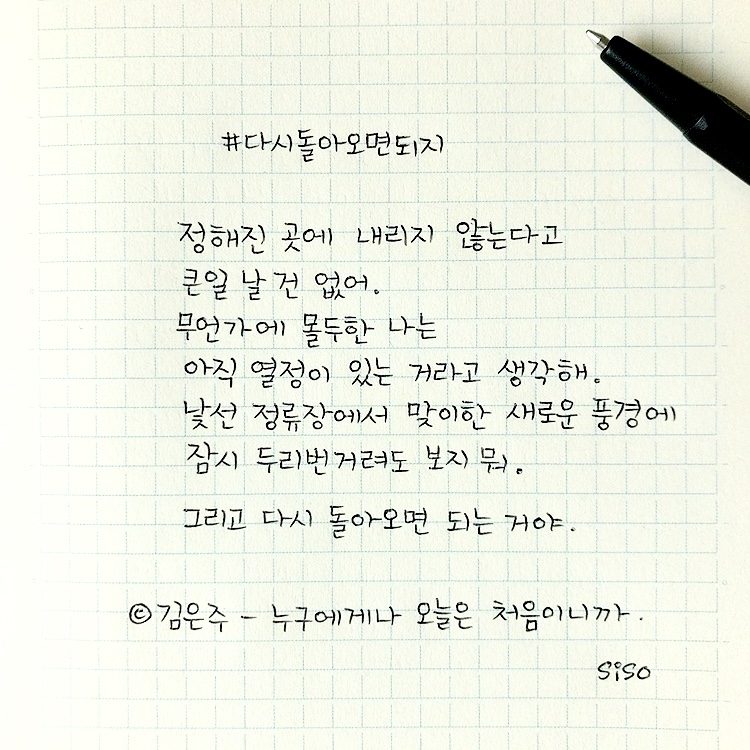 #다시돌아오면되지
정해진 곳에 내리지 않는다고
큰일 날 건 없어.
무언가에 몰두한 나는
아직 열정이 있는 거라고 생각해.
낯선 정류장에서 맞이한 새로운 풍경에
잠시 두리번거려도 보지 뭐.
그리고 다시 돌아오면 되는 거야.
©김은주 - 누구에게나 오늘은 처음이니까.
siso